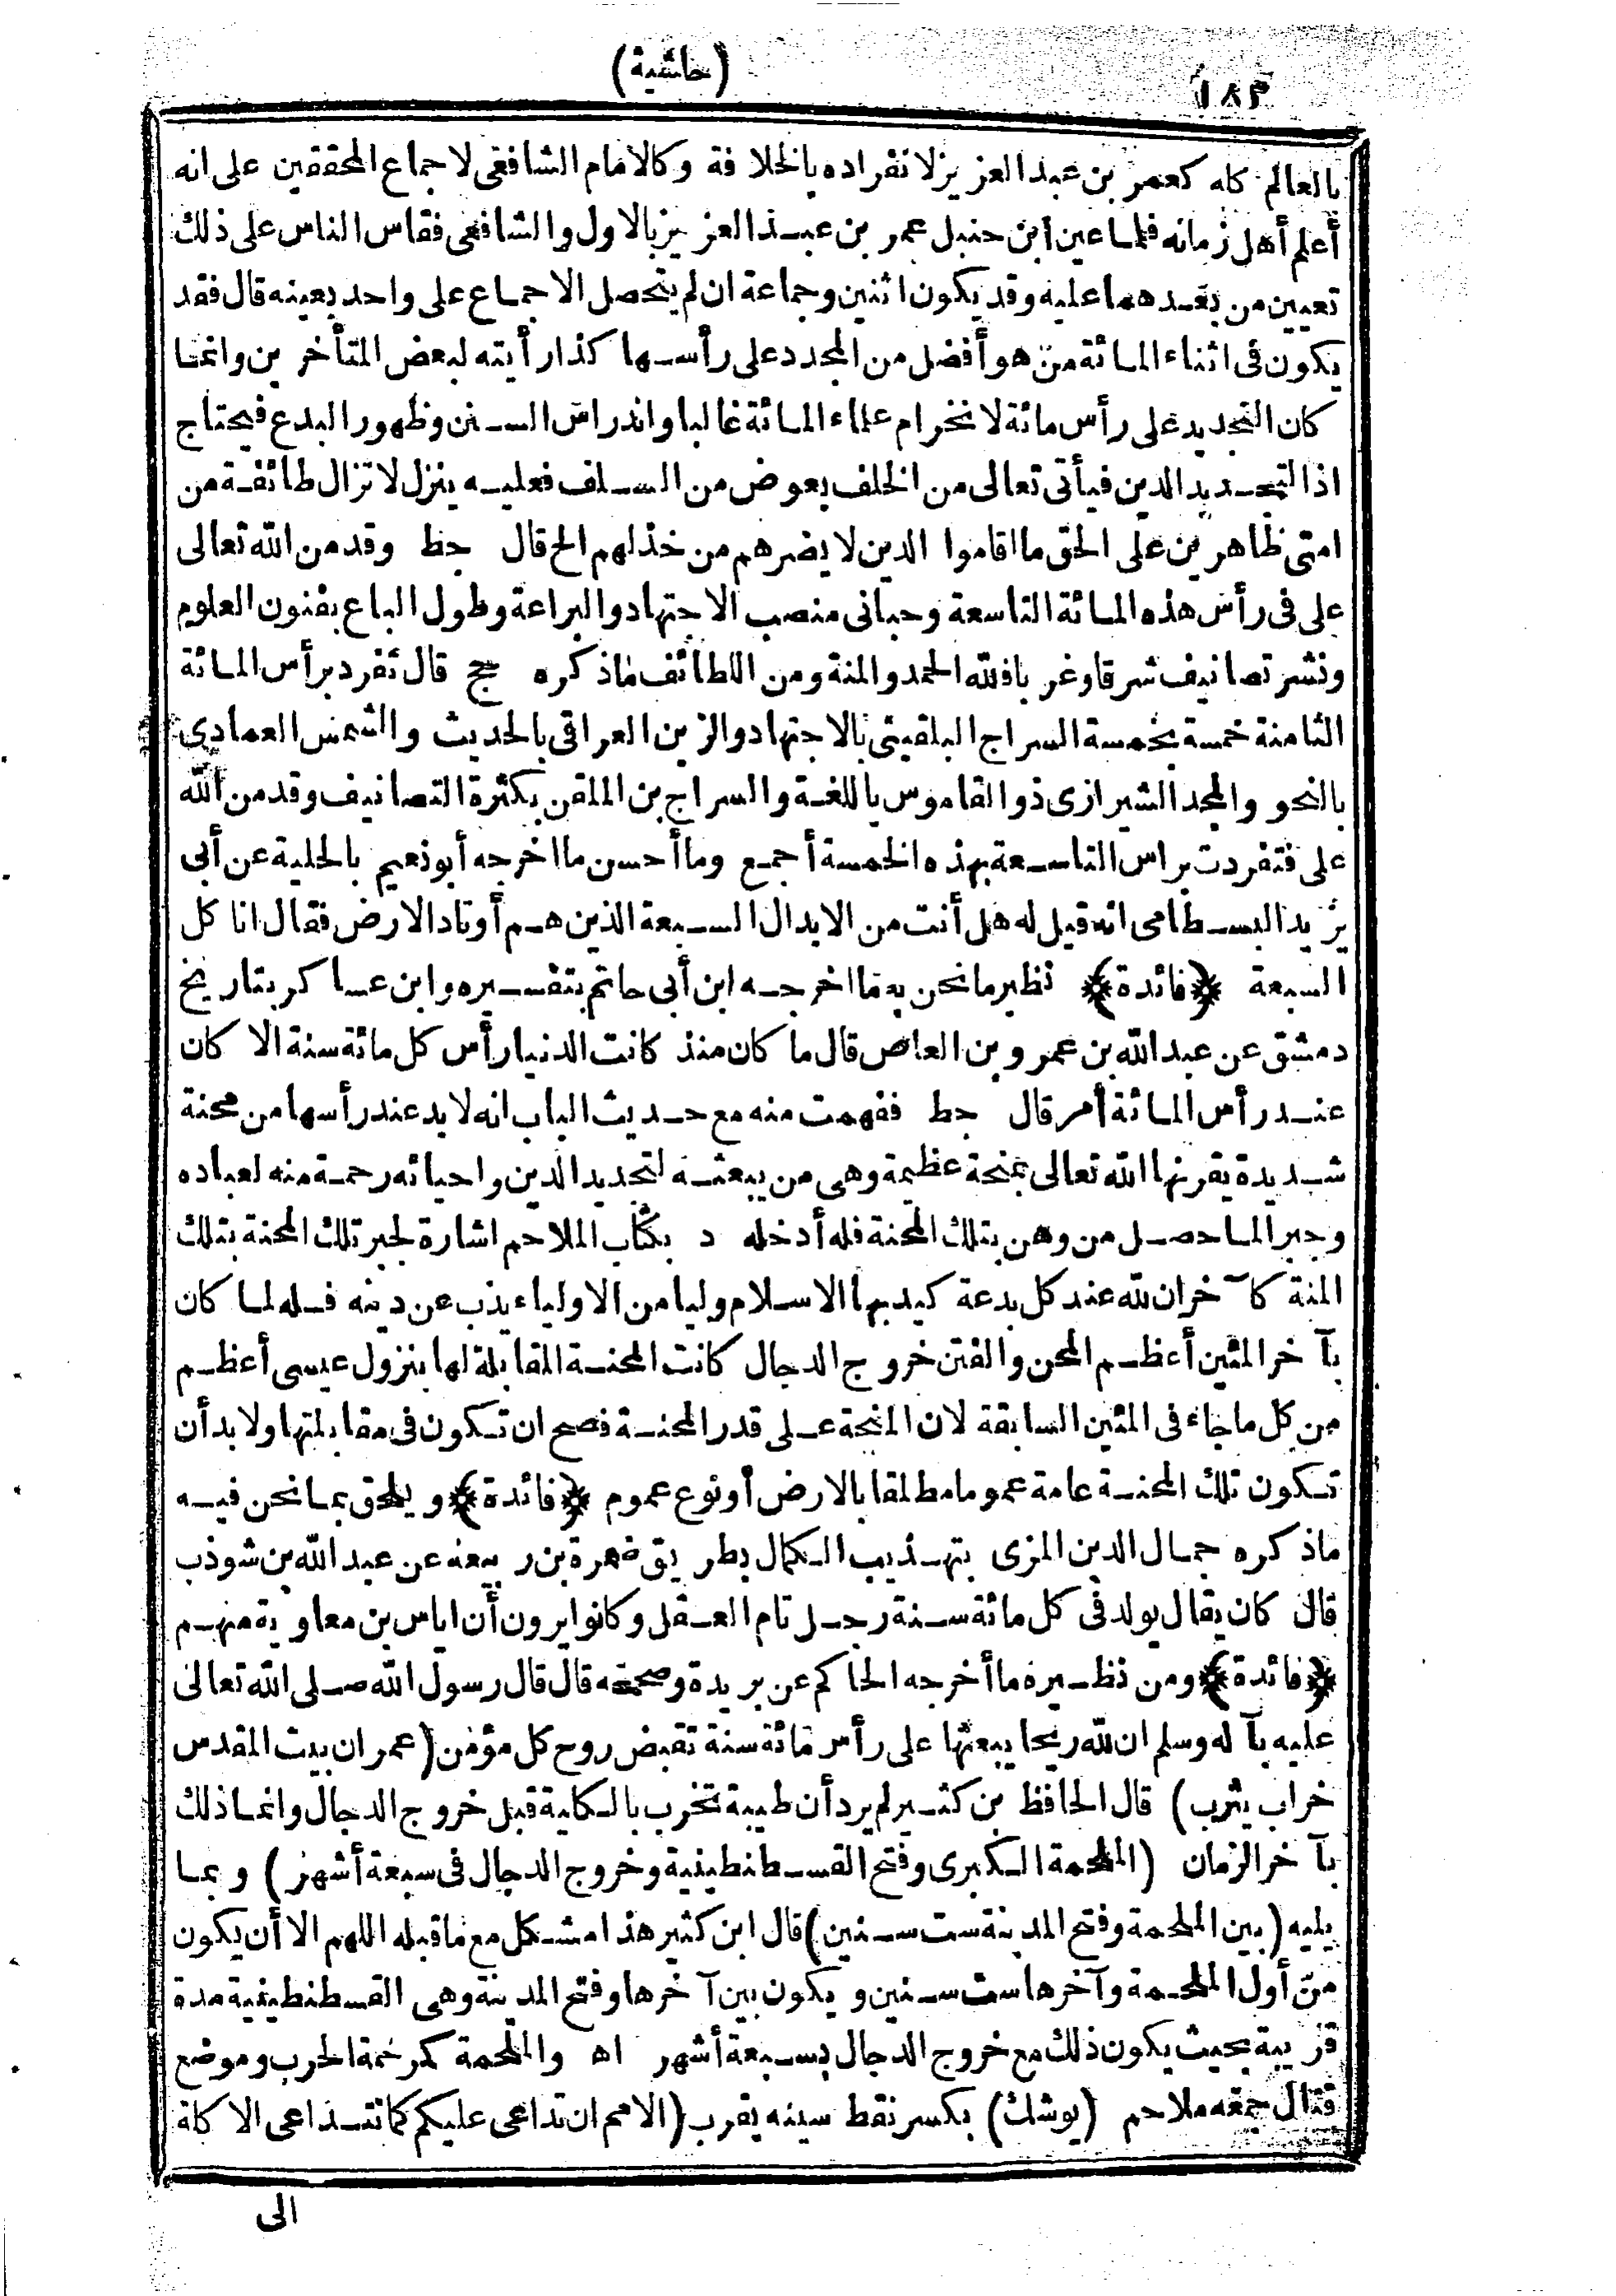 (حاشية)
١٨٣
بالعالم كله كعمر بن عبد العزيز لانفراده بالخلافة وكالامام الشافعى لاجماع المحققين على انه
أعلم أهل زمانه فلما عين ابن حنبل عمر بن عبد العزيز بالاول والشافعى فقاس الناس على ذلك
تعيين من بعدهما عليه وقد يكون اثنين وجماعة ان لم يتحصل الاجماع على واحد بعينه قال فقد
يكون فى اثناء المائة من هو أفضل من المجدد على رأسها كذا رأيته لبعض المتأخرين وانما
كان التجديد على رأس مائة لانخرام علماء المائة غالبا واندراس السنن وظهور البدع فيحتاج
اذا لتجديد الدين فيأتى تعالى من الخلف بعوض من السلف فعليه ينزل لا تزال طائفة من
امتى ظاهرين على الحق ما اقاموا الدين لا يضرهم من خذلهم الخ قال حط وقد من الله تعالى
على فى رأس هذه المائة التاسعة وحبانى منصب الاجتهاد والبراعة وطول الباع بفنون العلوم
ونشر تصانيف شرقا وغربا فلله الحمد والمنة ومن اللطائف ما ذكره حج قال تفرد برأس المائة
الثامنة خمسة بخمسة السراج البلقينى بالاجتهاد والزين العراقى بالحديث والشمس العمادى
بالنحو والمجد الشيرازى ذو القاموس باللغة والسراج بن الملقن بكثرة التصانيف وقد من الله
على فتفردت براس التاسعة بهذه الخمسة أجمع وما أحسن ما اخرجه أبو نعيم بالحلية عن أبى
يزيد البسطامى انه قيل له هل أنت من الابدال السبعة الذين هم أوتاد الارض فقال انا كل
السبعة ﴿فائدة﴾ نظير ما نحن به ما اخرجه ابن أبى حاتم بتفسيره وابن عساكر بتاريخ
دمشق عن عبد الله بن عمرو بن العاص قال ما كان منذ كانت الدنيا رأس كل مائة سنة الا كان
عند رأس المائة أمر قال حط ففهمت منه مع حديث الباب انه لا بد عند رأسها من محنة
شديدة يقرنها الله تعالى بمنحة عظيمة وهى من يبعثه لتجديد الدين واحيائه رحمة منه لعباده
وجبر الما حصل من وهن بتلك المحنة فله أدخله د بكتاب الملاحم اشارة لجبر تلك المحنة بتلك
المنة كآخر ان لله عند كل بدعة كيد بها الاسلام وليا من الاولياء يذب عن دينه فله لما كان
بآخر المئين أعظم المحن والفتن خروج الدجال كانت المحنة المقابلة لها بنزول عيسى أعظم
من كل ما جاء فى المئين السابقة لان المنحة على قدر المحنة فصح ان تكون فى مقابلتها ولا بد أن
تكون تلك المحنة عامة عموما مطلقا بالارض أو نوع عموم ﴿فائدة﴾ ويلحق بما نحن فيه
ما ذكره جمال الدين المزى بتهذيب الكمال بطريق ضمرة بن ربيعة عن عبد الله بن شوذب
قال كان يقال يولد فى كل مائة سنة رجل تام العقل وكانوا يرون أن اياس بن معاوية منهم
﴿فائدة﴾ ومن نظيره ما أخرجه الحاكم عن بريدة وصححه قال قال رسول الله صلى الله تعالى
عليه بآله وسلم ان لله ريحا يبعثها على رأس مائة سنة تقبض روح كل مؤمن (عمران بيت المقدس
خراب يثرب) قال الحافظ بن كثير لم يرد أن طيبة تخرب بالكلية قبل خروج الدجال وانما ذلك
بآخر الزمان (الملحمة الكبرى وفتح القسطنطينية وخروج الدجال فى سبعة أشهر) وبما
يليه (بين الملحمة وفتح المدينة ست سنين) قال ابن كثير هذا مشكل مع ما قبله اللهم الا أن يكون
من أول الملحمة وآخرها ست سنين و يكون بين آخرها وفتح المدينة وهى القسطنطينية مدة
قريبة بحيث يكون ذلك مع خروج الدجال بسبعة أشهر اه والملحمة كمرحمة الحرب وموضع
قتال جمعه ملاحم (يوشك) بكسر نقط سينه يقرب (الامم ان تداعى عليكم كما تتداعى الاكلة
الى